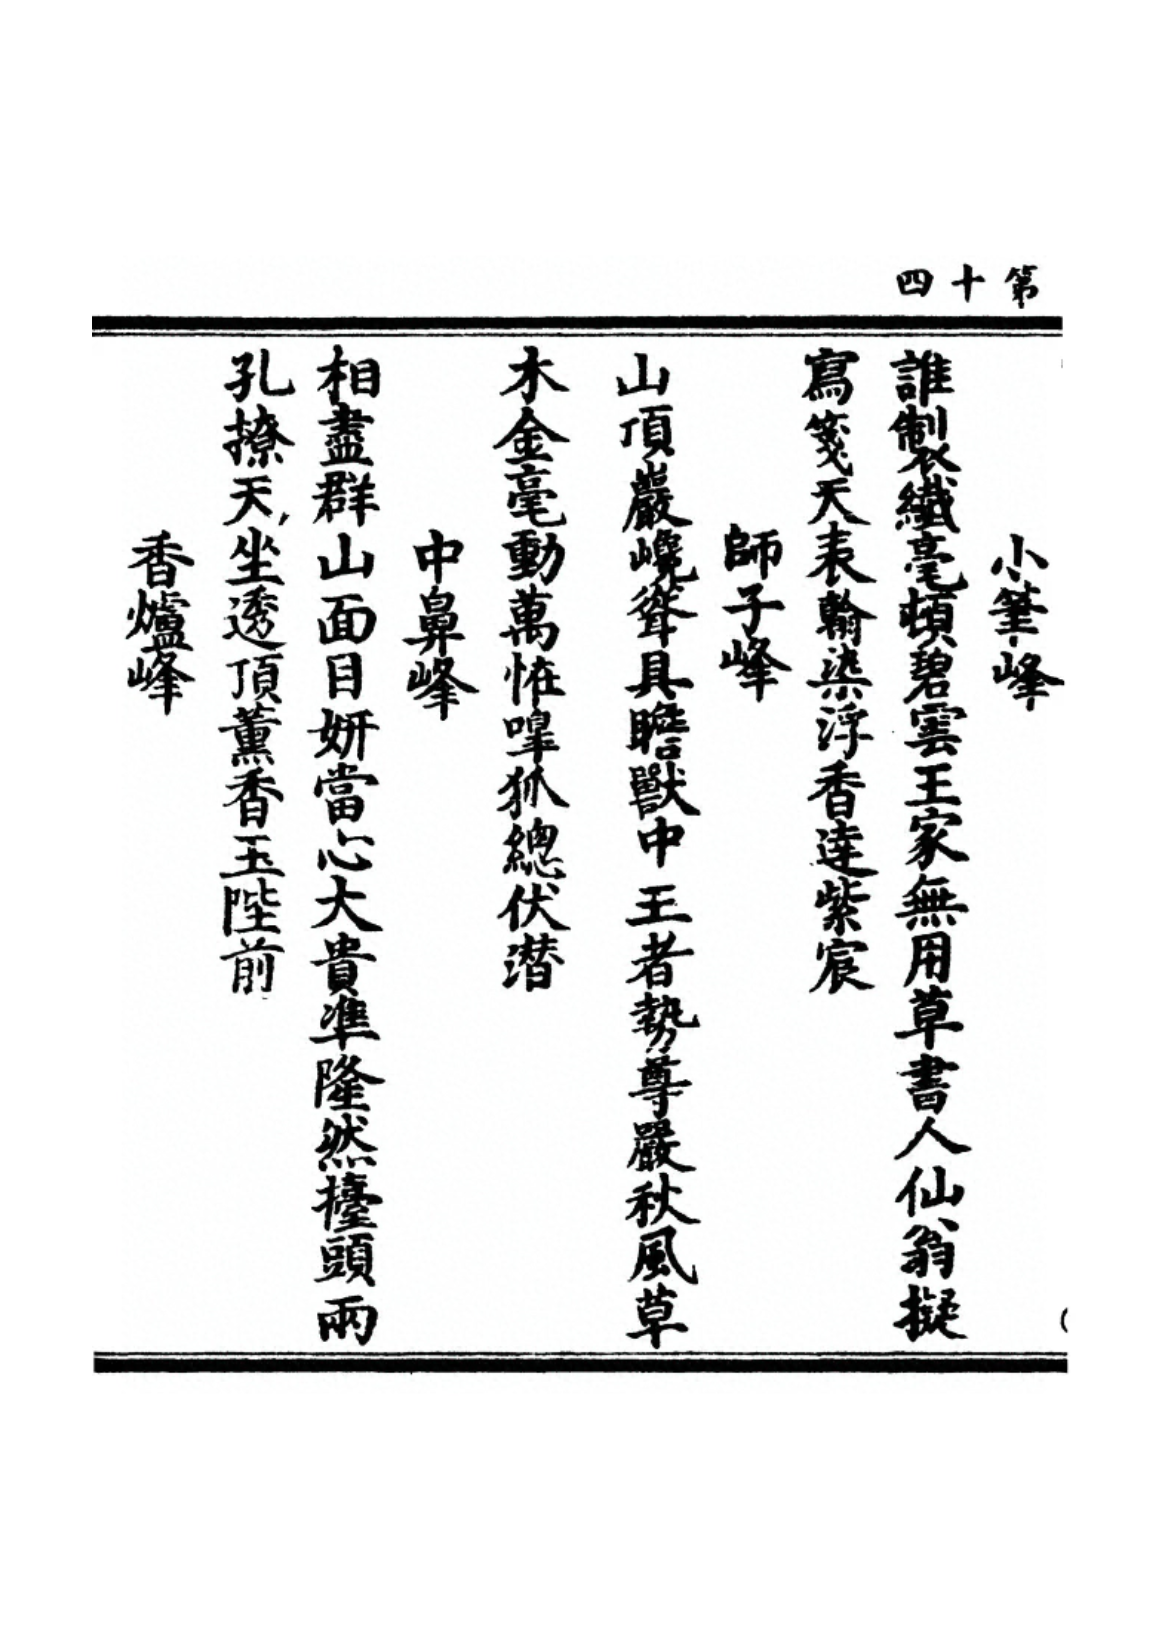 第十四
小筆峰
誰製纖毫頓碧雲王家無用草書人仙翁擬
寫箋天表翰染浮香達紫宸
師子峰
山頂巖巉聳具瞻獸中王者勢尊嚴秋風草
木金毫動萬恠嘷狐總伏潛
中鼻峰
相盡群山面目妍當心大貴準隆然擡頭兩
孔撩天坐透頂薰香玉陛前
香爐峰